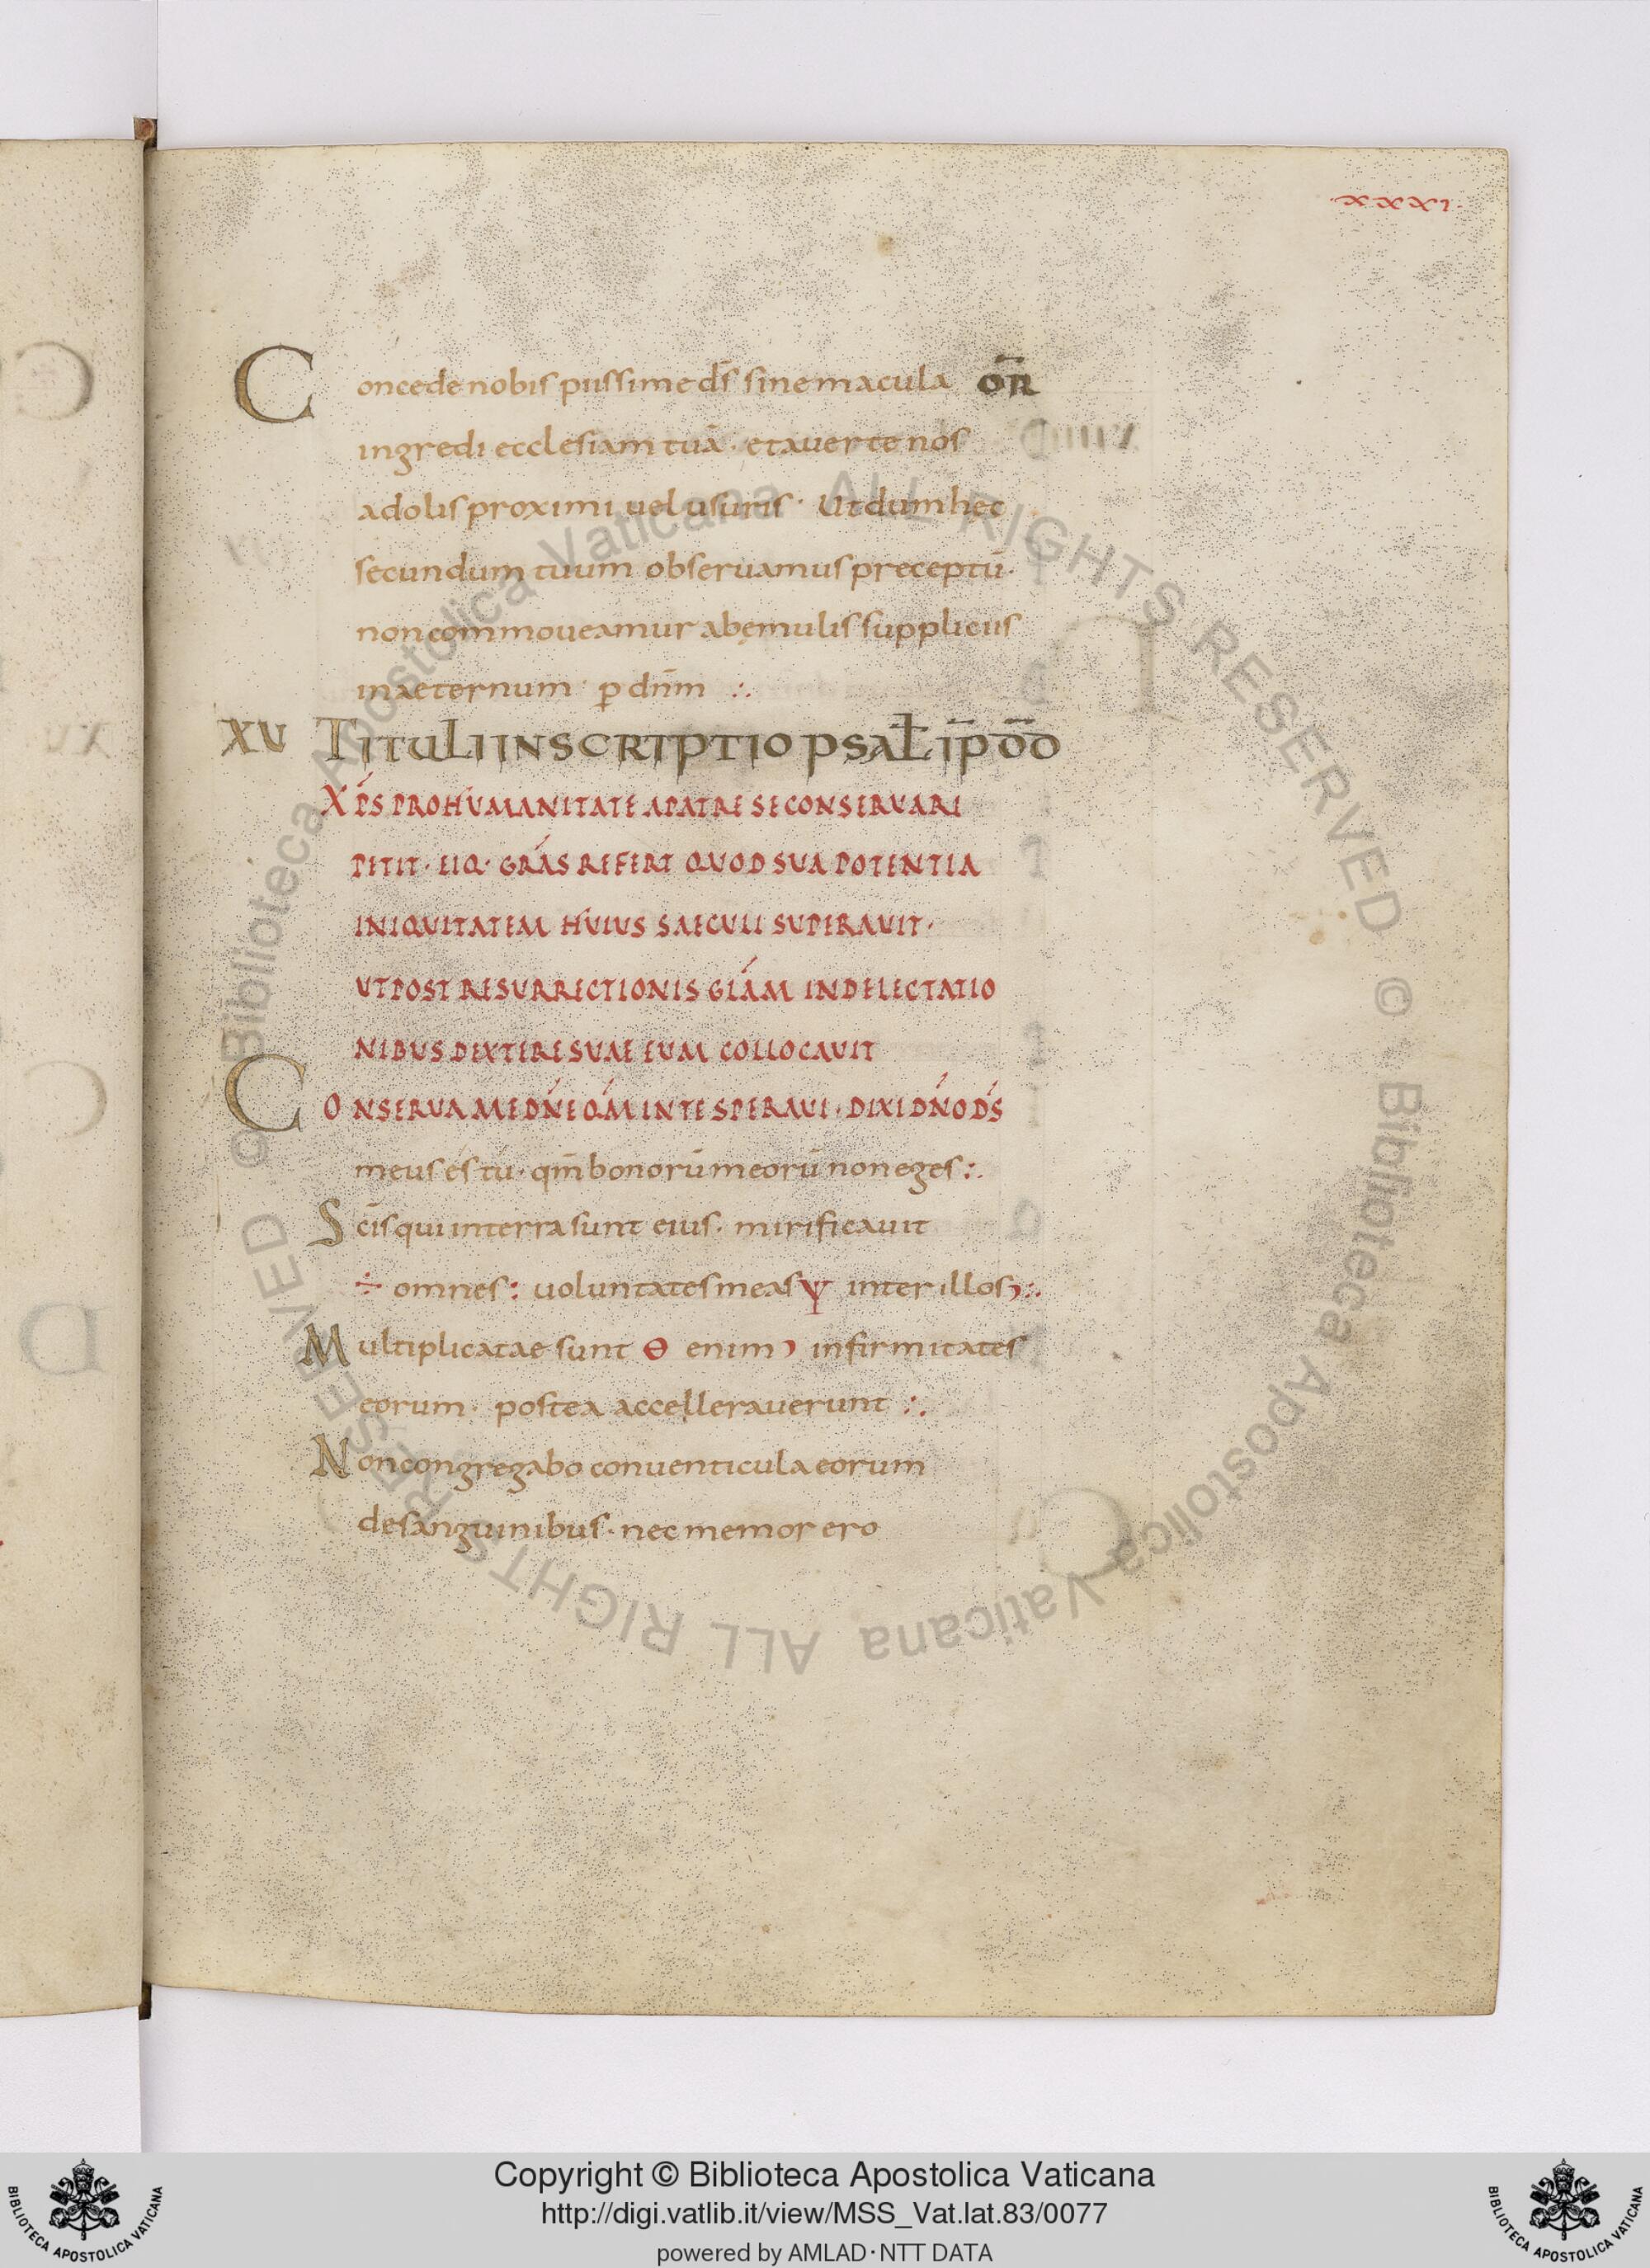 ·XXXI·
Concede nobis piissime d̅s sine macula O̅R̅
ingredi ecclesiam tuā · et averte nos
a dolis proximi vel usuris · Ut dum hęc
secundum tuum observamus preceptū ·
non commoveamur ab ęmulis suppliciis
in aeternum · p̲ dn̅m ∴
XV TITULI INSCRIPTIO PSAL̅ IP̅ DD̅
XP̅S PRO HUMANITATE A PATRE SE CONSERVARI
PETIT · EIQ · GRA̅S REFERT QUOD SUA POTENTIA
INIQUITATEM HUIUS SAECULI SUPERAVIT ·
UT POST RESURRECTIONIS GL̅AM IN DELECTATIO
NIBUS DEXTERE SUAE EUM COLLOCAVIT
CONSERVA ME DN̅E QM̅ IN TE SPERAVI · DIXI DN̅O DS̅
meus es tu · qm̅ bonorū meorū non eges ∴
Sc̅is qui in terra sunt eius · mirificavit
÷ omnes : voluntates meas Ψ inter illos ∴
Multiplicatae sunt Θ enim infirmitates
eorum · postea accelleraverunt ∴
Non congregabo conventicula eorum
de sanguinibus · nec memor ero
© Biblioteca Apostolica Vaticana ALL RIGHTS RESERVED © Biblioteca Apostolica Vaticana ALL RIGHTS RESERVED
BIBLIOTECA APOSTOLICA VATICANA
Copyright © Biblioteca Apostolica Vaticana
http://digi.vatlib.it/view/MSS_Vat.lat.83/0077
powered by AMLAD·NTT DATA
BIBLIOTECA APOSTOLICA VATICANA